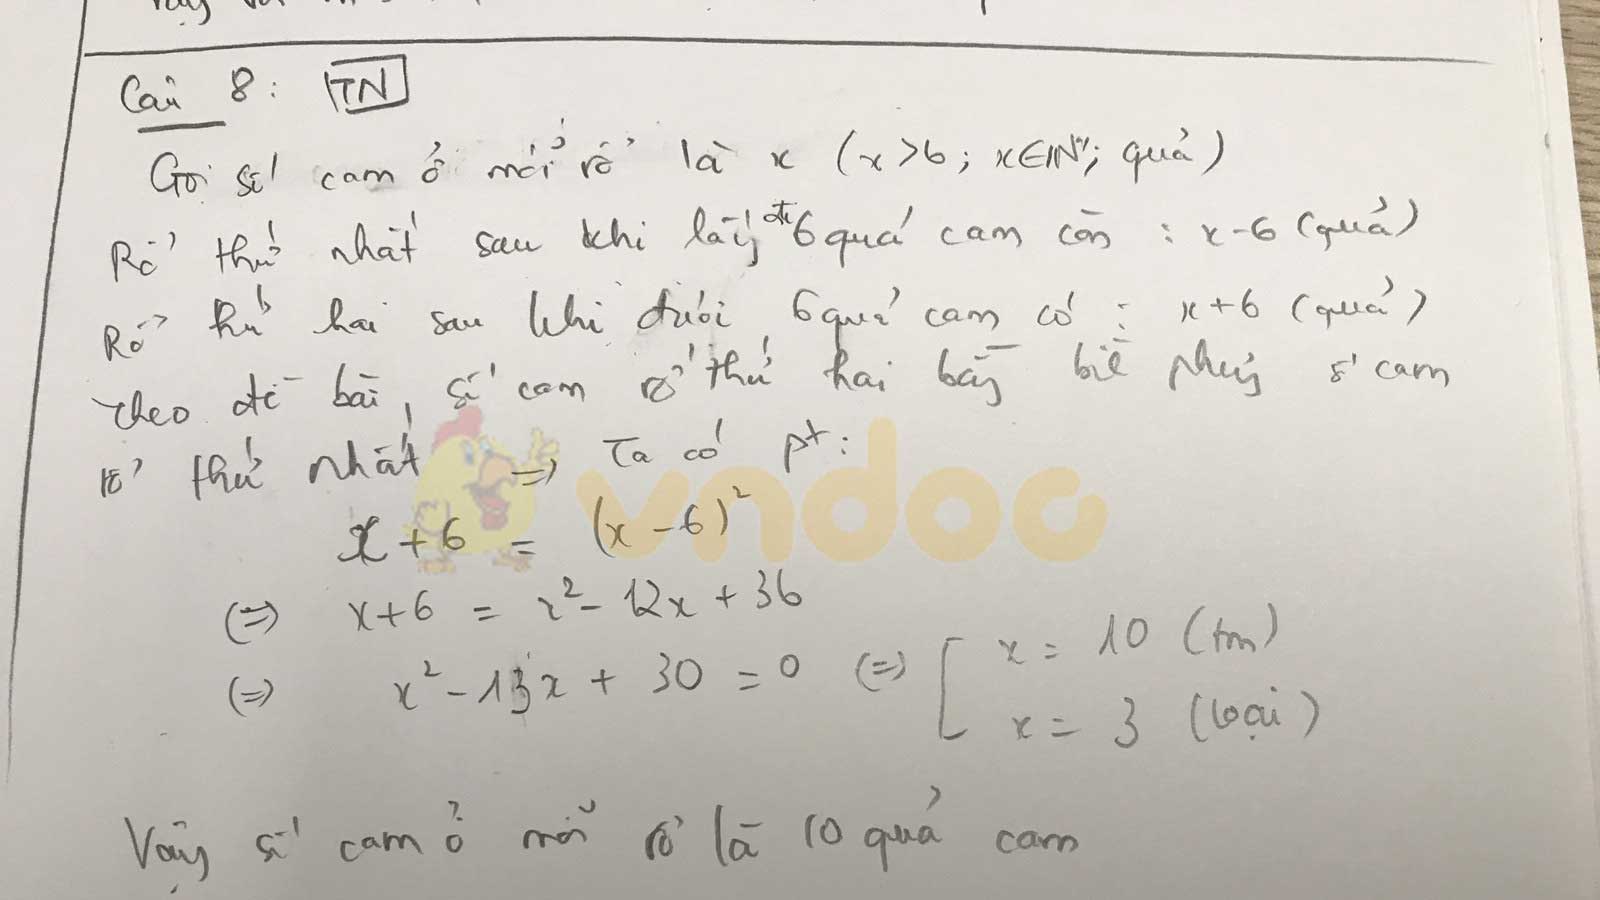 Câu 8: TN
Gọi số cam ở mỗi rổ là x (x>6; x∈N*; quả)
Rổ thứ nhất sau khi lấy đi 6 quả cam còn : x-6 (quả)
Rổ thứ hai sau khi 6 quả cam có : x+6 (quả)
theo đề bài, số cam rổ thứ hai bằng số cam
rổ thứ nhất => Ta có pt:
x+6 = (x-6)²
(=) x+6 = x²-12x+36
(=) x²-13x+30=0 (=) [ x = 10 (tm)
x = 3 (loại)
Vậy số cam ở mỗi rổ là 10 quả cam
vndoc